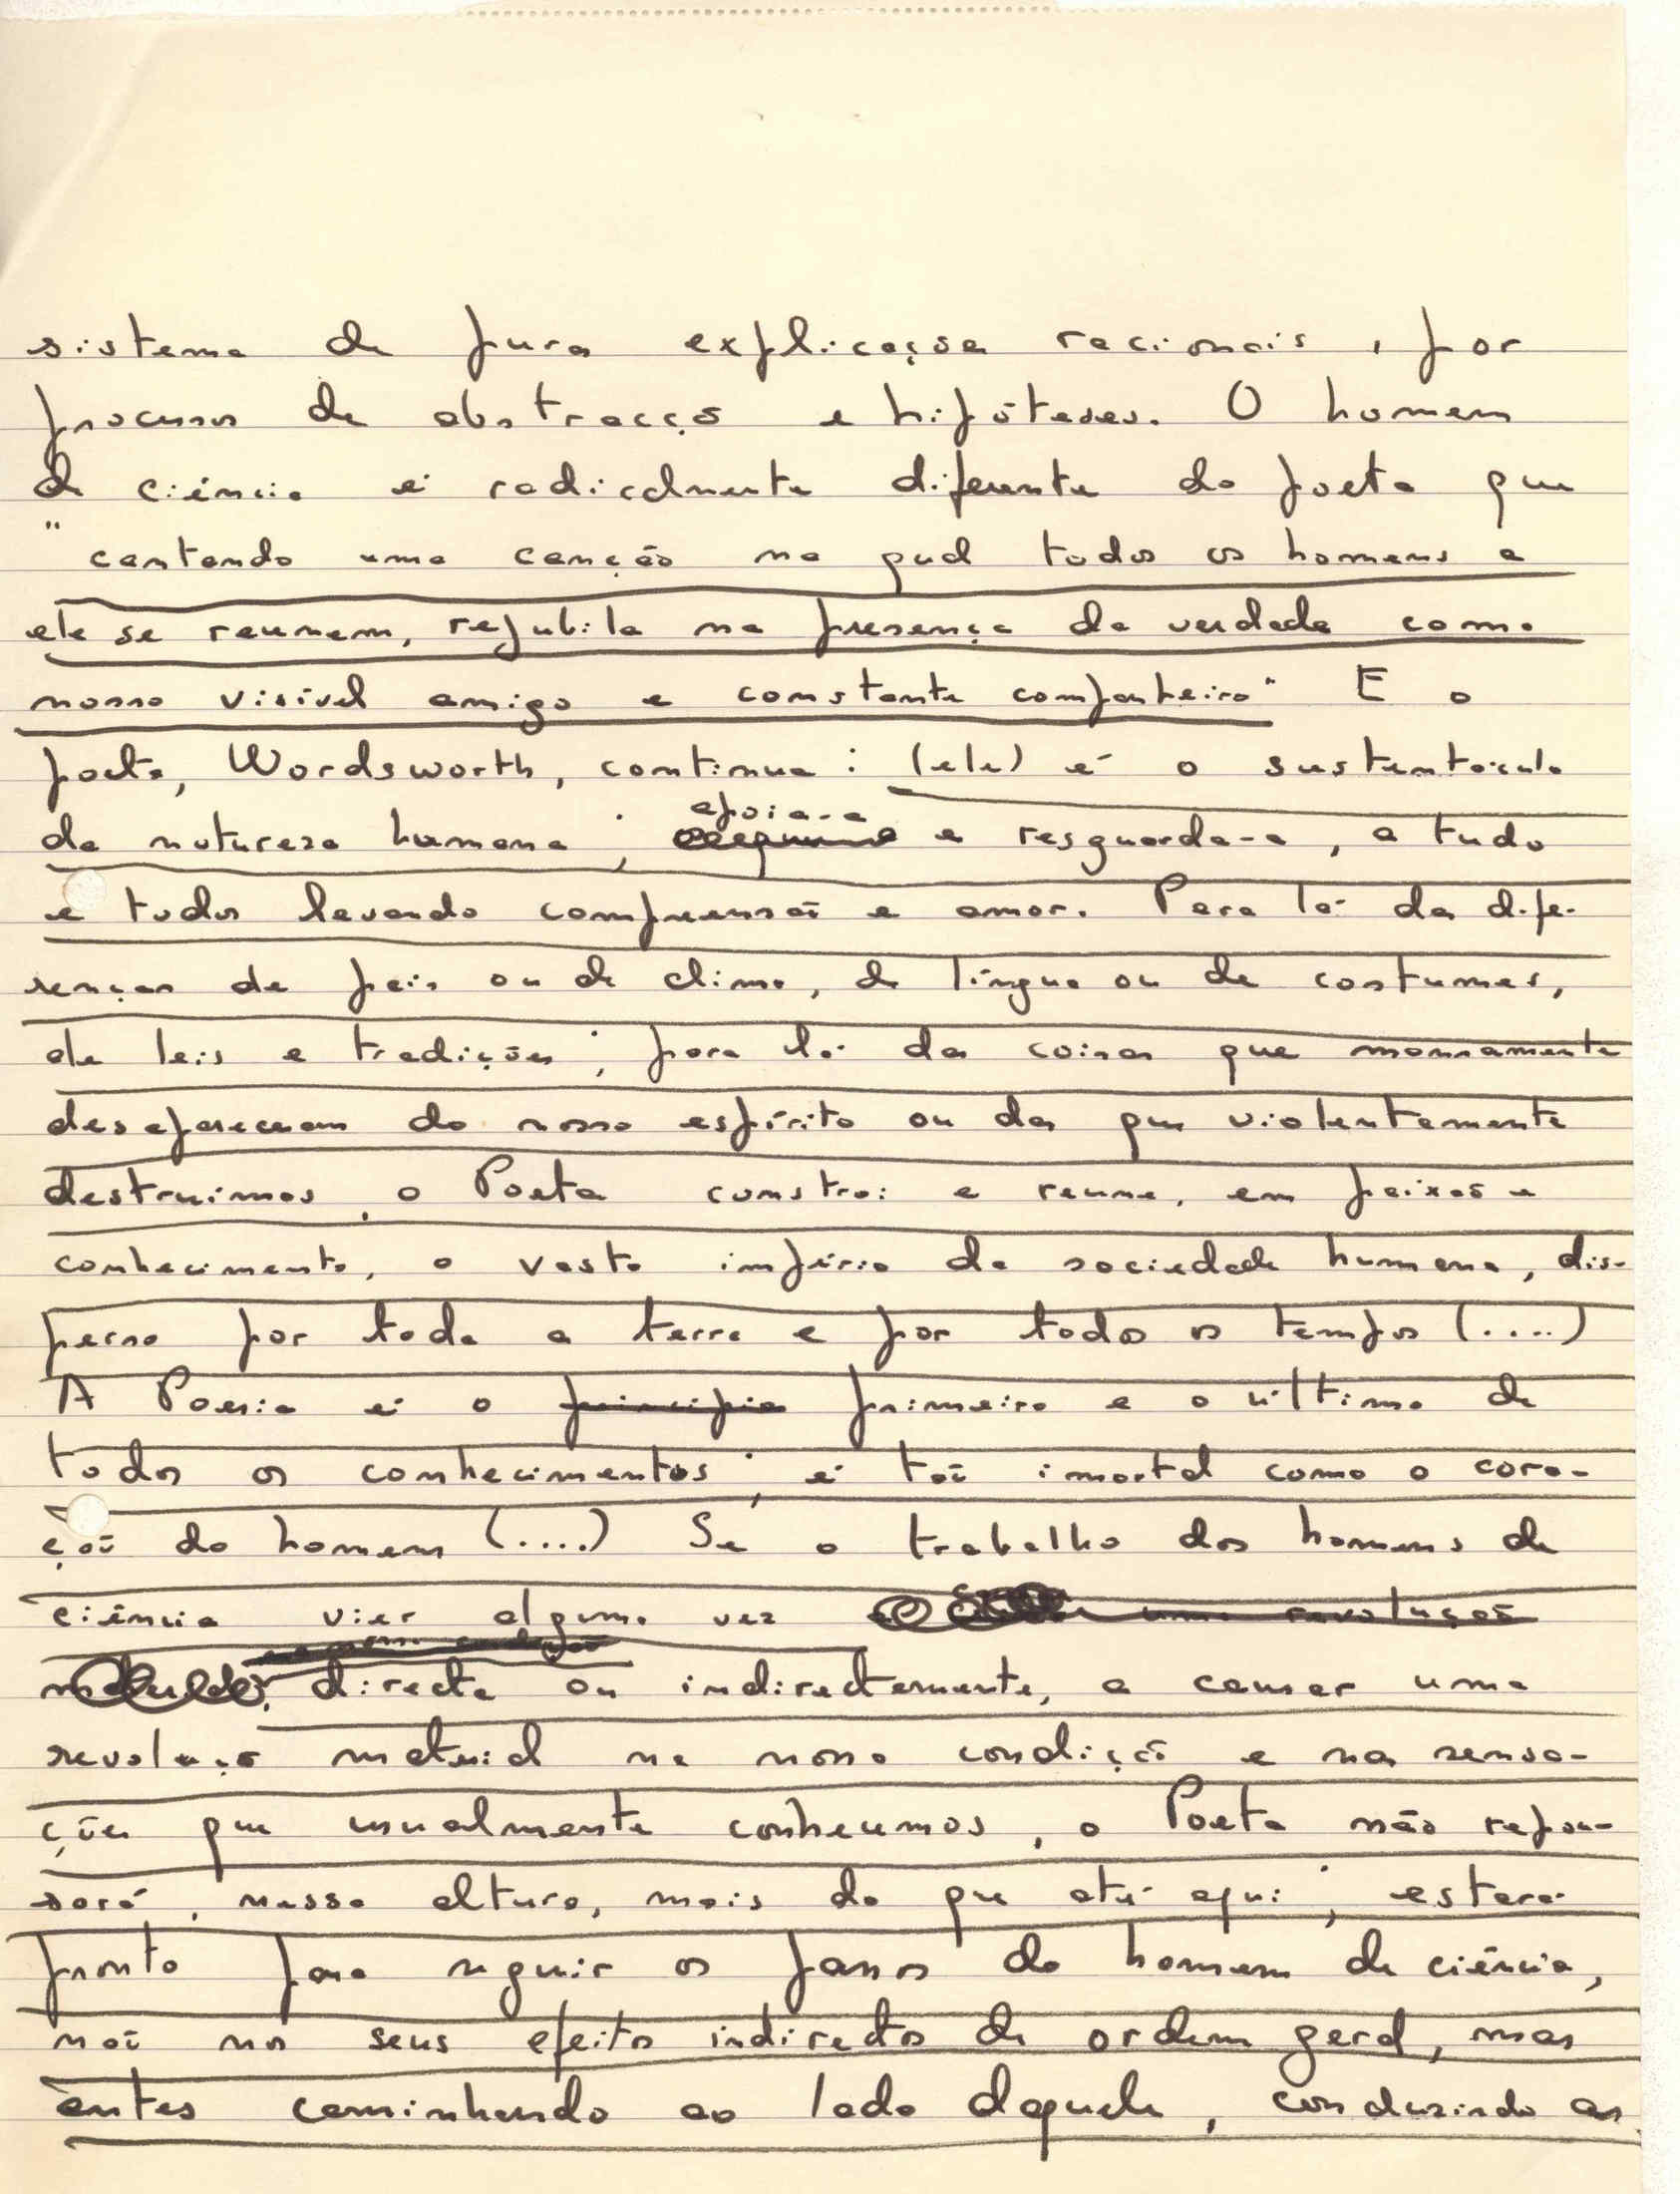 sistema de puras explicações racionais, por
processos de abstracção e hipóteses. O homem
de ciência é radicalmente diferente do poeta que
"cantando uma canção na qual todos os homens a
ele se reunem, rejubila na presença da verdade como
nosso visível amigo e constante companheiro" E o
poeta, Wordsworth, continua: (ele) é o sustentáculo
da natureza humana; apoia-a e resguarda-a, a tudo
e todos levando compreensão e amor. Para lá das dife-
renças de país ou de clima, de língua ou de costumes,
de leis e tradições; para lá das coisas que mansamente
desapareceram do nosso espírito ou das que violentamente
destruimos, o Poeta constroi e reune, em paixão e
conhecimento, o vasto império da sociedade humana, dis-
perso por toda a terra e por todos os tempos (....)
A Poesia é o principio primeiro e o último de
todos os conhecimentos; é tão imortal como o cora-
ção do homem (....) Se o trabalho dos homens de
ciência vier alguma vez uma revolução
directa ou indirectamente, a causar uma
revolução material na nossa condição e nas sensa-
ções que usualmente conhecemos, o Poeta não repou-
sará, nessa altura, mais do que até aqui; estará
pronto para seguir os passos do homem de ciência,
não nos seus efeitos indirectos de ordem geral, mas
antes caminhando ao lado daquele, conduzindo as